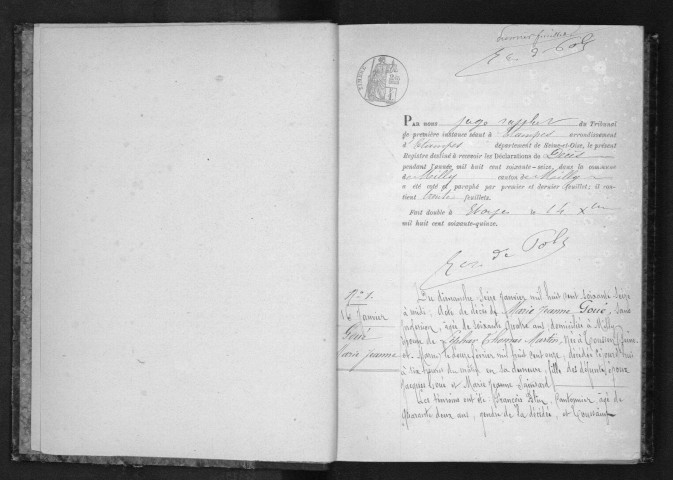 premier feuillet
TIMBRE
PAR nous juge suppléant du Tribunal
de première instance séant à Etampes arrondissement
d'Etampes département de Seine-et-Oise, le présent
Registre destiné à recevoir les Déclarations de Décès
pendant l'année mil huit cent soixante-seize, dans la commune
de Milly canton de Milly
a été coté et paraphé par premier et dernier feuillet; il con-
tient trente feuillets.
Fait double à Etampes le 14 Xbre
mil huit cent soixante-quinze.
N° 1.
16 Janvier
Marie Jeanne
Du dimanche seize janvier mil huit cent soixante seize
à midi. Acte de décès de Marie Jeanne Goué, sans
profession, âgée de soixante quatre ans, domiciliée à Milly
Thomas Martin, née à
et Marne, le douze février mil huit cent onze, décédée
du matin en sa demeure, fille des défunts époux
Jacques Goué et Marie Jeanne
Les témoins ont été François
quarante deux ans, gendre de la décédée, et Toussaint